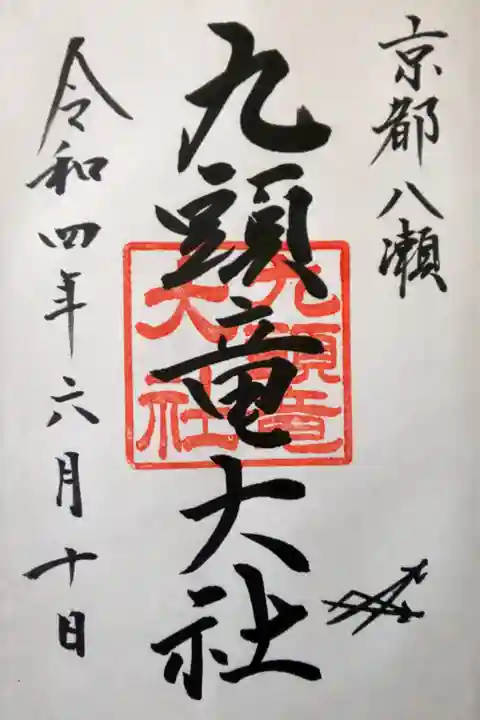 京都八瀬
九頭竜大社
九頭竜
大社
令和四年六月十日